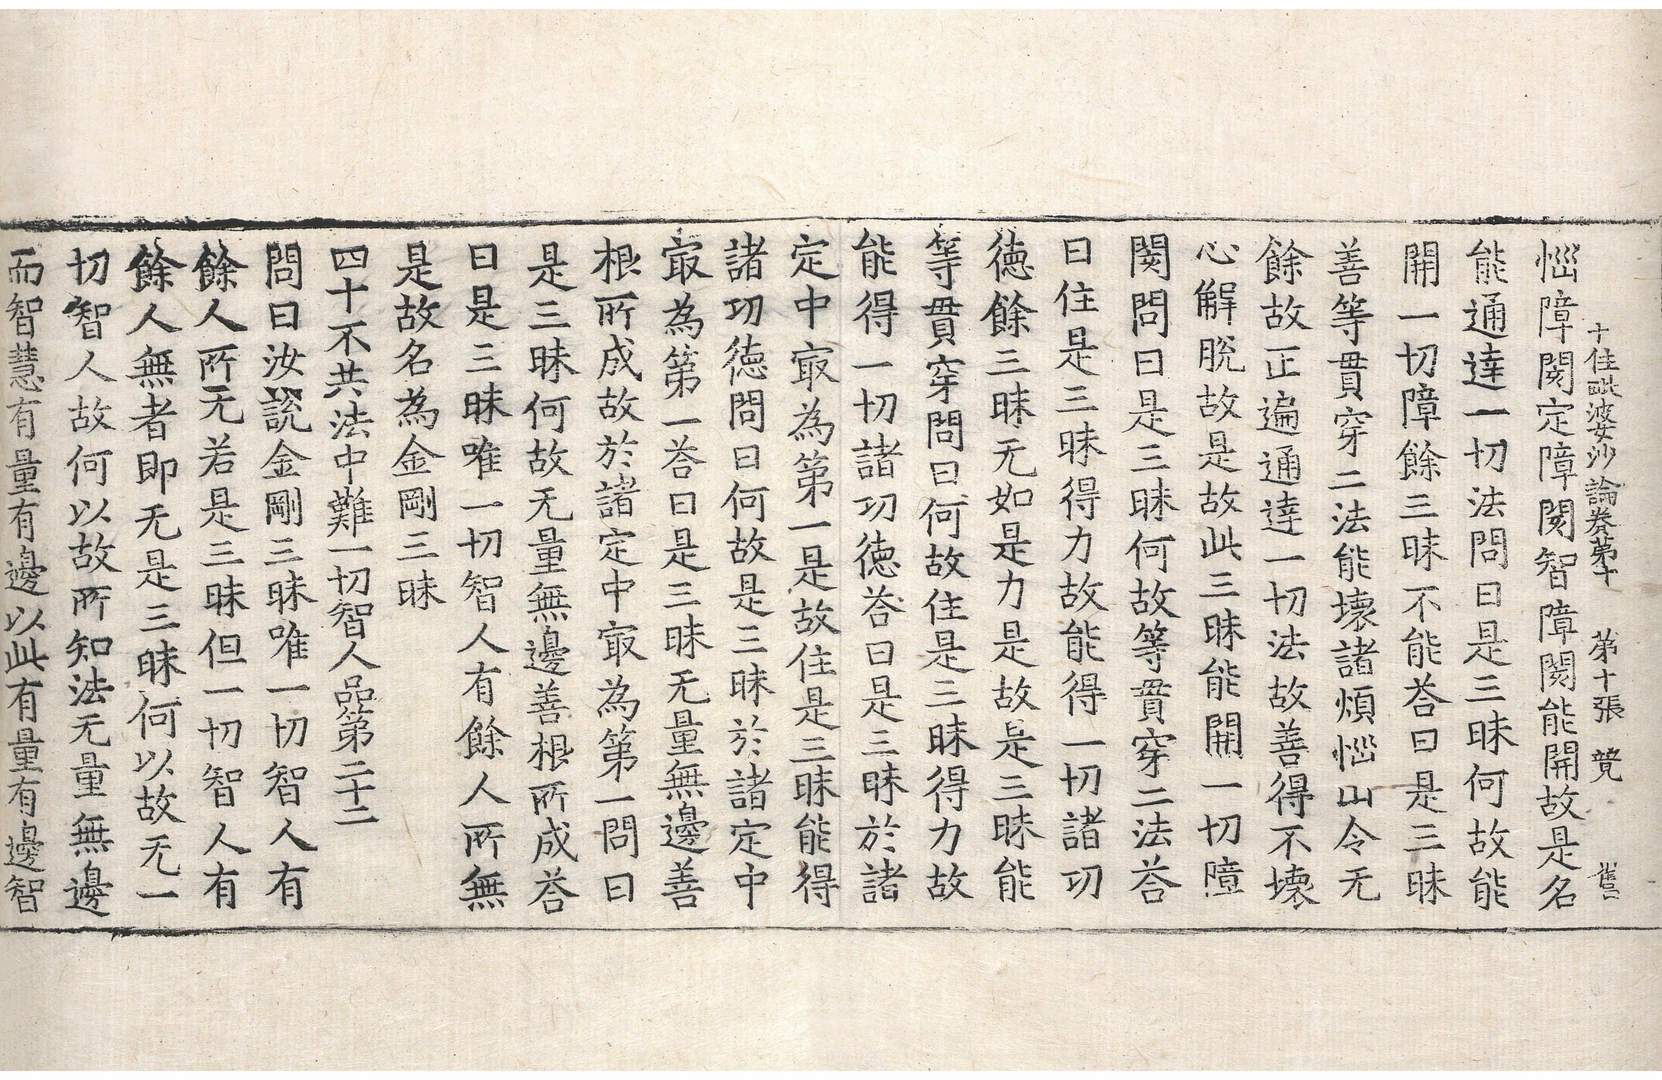 十住毗婆沙論卷第十　第十張　覽　舊一
惱障閡定障閡智障閡能開故是名
能通達一切法問曰是三昧何故能
開一切障餘三昧不能荅曰是三昧
善等貫穿二法能壞諸煩惱山令无
餘故正遍通達一切法故善得不壞
心解脫故是故此三昧能開一切障
閡問曰是三昧何故等貫穿二法荅
曰住是三昧得力故能得一切諸功
德餘三昧无如是力是故是三昧能
等貫穿問曰何故住是三昧得力故
能得一切諸功德荅曰是三昧於諸
定中㝡為第一是故住是三昧能得
諸功德問曰何故是三昧於諸定中
㝡為第一荅曰是三昧无量無邊善
根所成故於諸定中㝡為第一問曰
是三昧何故无量無邊善根所成荅
曰是三昧唯一切智人有餘人所無
是故名為金剛三昧
四十不共法中難一切智人品第二十二
問曰汝說金剛三昧唯一切智人有
餘人所无若是三昧但一切智人有
餘人無者即无是三昧何以故无一
切智人故何以故所知法无量無邊
而智慧有量有邊以此有量有邊智